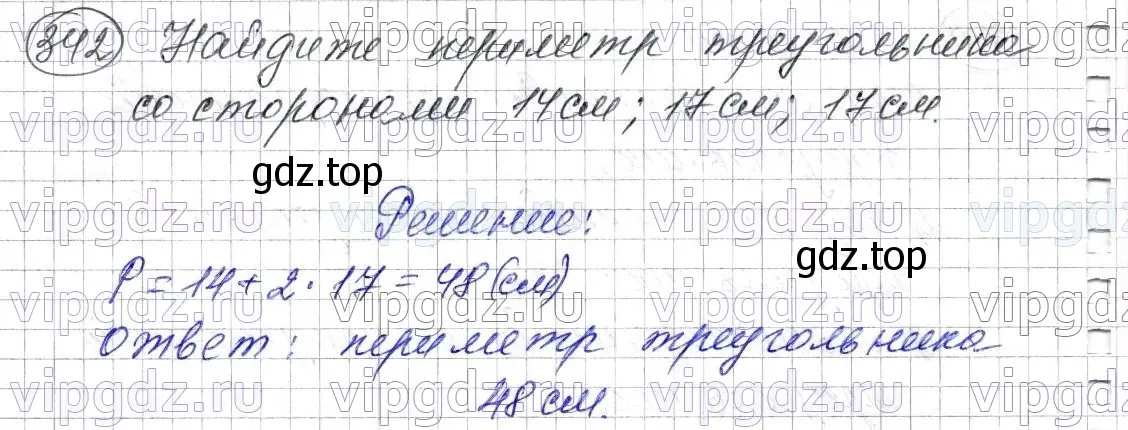 342 Найдите периметр треугольника
со сторонами 14 см; 17 см; 17 см.
gdz.top
Решение:
gdz.top
P = 14 + 2 · 17 = 48 (см)
Ответ: периметр треугольника
48 см.
vipgdz.ru